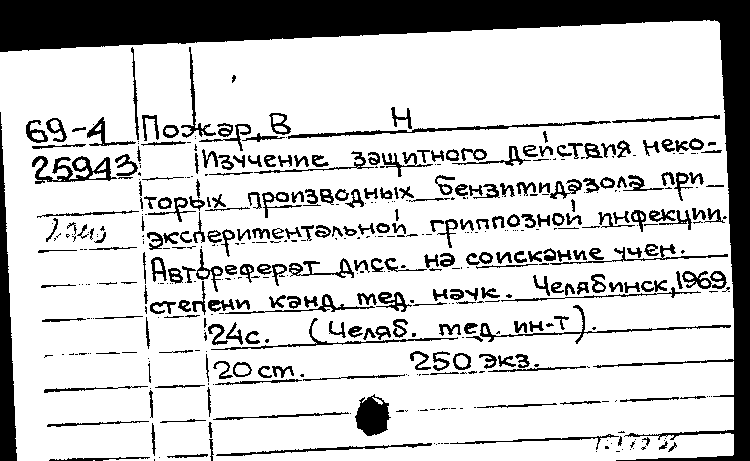 69-4 Пожар, В Н
25943 Изучение защитного действия неко-
торых производных бензимидазола при
экспериментальной гриппозной инфекции.
Автореферат дисс. на соискание учен.
степени канд. мед. наук. Челябинск, 1969.
24с. (Челяб. мед. ин-т).
20 ст. 250 экз.